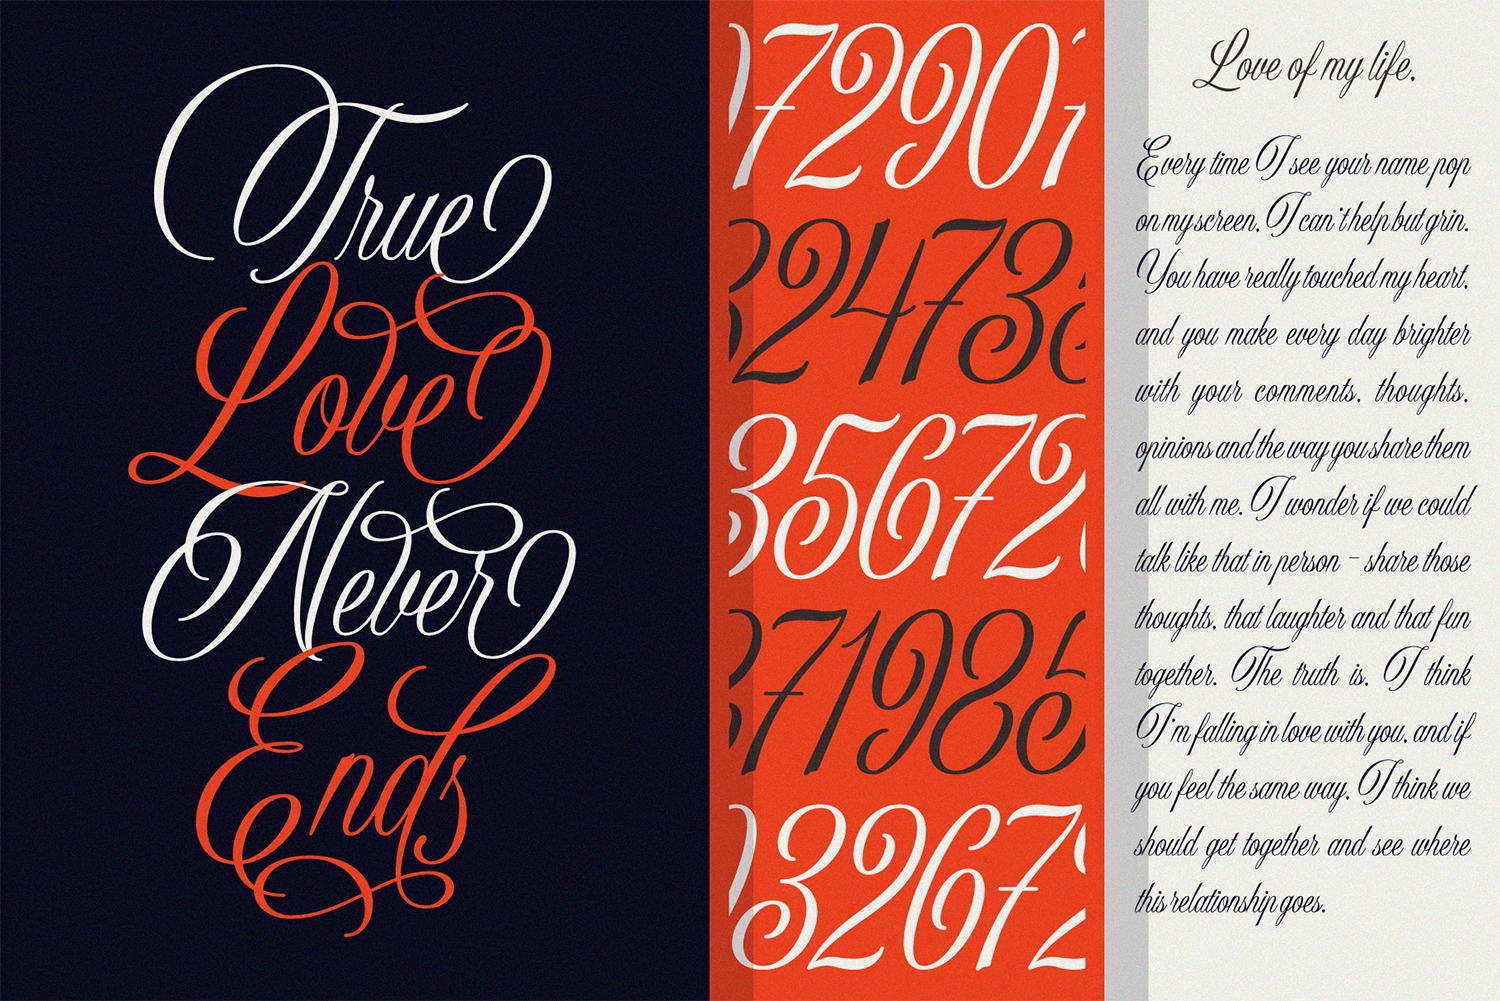 True
Love
Never
Ends
72901
32473
35672
71985
32672
Love of my life.
Every time I see your name pop
on my screen, I can't help but grin.
You have really touched my heart,
and you make every day brighter
with your comments, thoughts,
opinions and the way you share them
all with me. I wonder if we could
talk like that in person – share those
thoughts, that laughter and that fun
together. The truth is, I think
I'm falling in love with you, and if
you feel the same way, I think we
should get together and see where
this relationship goes.